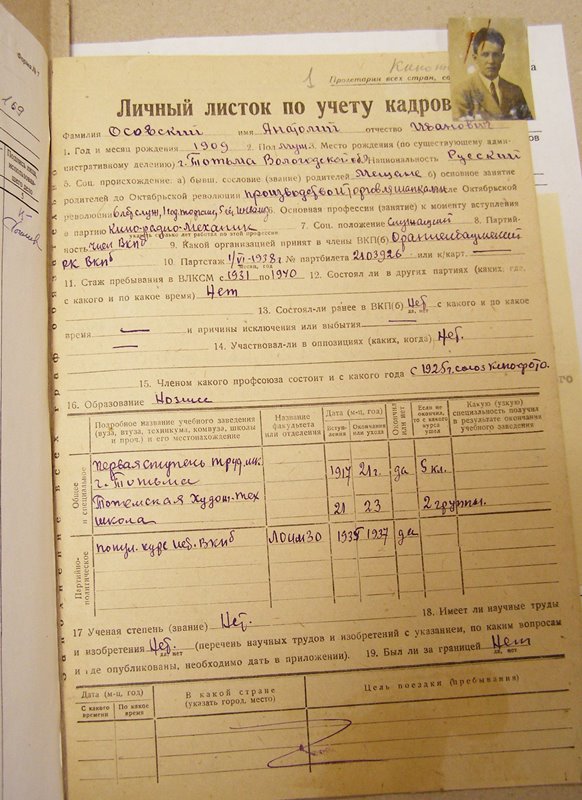 Форма № 7
169
1
Пролетарии всех стран, со
Личный листок по учету кадров
Фамилия Осовский имя Анатолий отчество Иванович
1. Год и месяц рождения 1909 2. Пол муж 3. Место рождения (по существующему адми-
нистративному делению) г. Тотьма Вологодской об Национальность Русский
5. Соц. происхождение: а) бывш. сословие (звание) родителей Мещане б) основное занятие
родителей до Октябрьской революции производство и торговля шапками после Октябрьской
революции 6. Основная профессия (занятие) к моменту вступления
в партию Кино-радио-механик 7. Соц. положение Служащий 8. Партий-
указать сколько лет работал по этой профессии
ность Член ВКПб 9. Какой организацией принят в члены ВКП(б) Ораниенбаумский
РК ВКПб 10. Партстаж 1/VI-1938г № партбилета 2103926 или к/карт. —
месяц, год
11. Стаж пребывания в ВЛКСМ с 1931 по 1940 12. Состоял ли в других партиях (каких, где,
с какого и по какое время) Нет
13. Состоял-ли ранее в ВКП(б) Нет с какого и по какое
да, нет
время — и причины исключения или выбытия —
—
14. Участвовал-ли в оппозициях (каких, когда) Нет.
15. Членом какого профсоюза состоит и с какого года с 1925г. союз кинофото.
16. Образование Низшее
Подробное название учебного заведения (вуза, втуза, техникума, комвуза, школы и проч.) и его местонахождение
Название факультета или отделения
Дата (м-ц, год)
Вступления
Окончания или ухода
Окончил или нет
Если не окончил, то с какого курса ушел
Какую (узкую) специальность получил в результате окончания учебного заведения
Общее и специальное
Первая ступень труд. шк. г. Тотьма 1917 21г. да 5 кл.
Тотемская худож. тех школа 21 23 2 группы.
Партийно-политическое
ист. ВКПб 1937 да
17 Ученая степень (звание) Нет. 18. Имеет ли научные труды
и изобретения Нет. (перечень научных трудов и изобретений с указанием, по каким вопросам
да, нет
и где опубликованы, необходимо дать в приложении). 19. Был ли за границей Нет
да, нет
Дата (м-ц, год)
С какого времени
По какое время
В какой стране (указать город, место)
Цель поездки (пребывания)